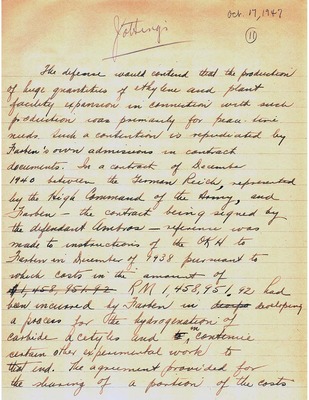 Oct. 17, 1947
(11)
Jottings
The defense would contend that the production
of huge quantities of ethylene and plant
facility expansion in connection with such
production was primarily for peace time
needs. Such a contention is repudiated by
Farben's own admissions in contract
documents. In a contract of December
1940 between the German Reich, represented
by the High Command of the Army, and
Farben – the contract being signed by
the defendant Ambros – reference was
made to instructions of the OKH to
Farben in December of 1938 pursuant to
which costs in the amount of
RM 1,458,951,92 had
been incurred by Farben in developing
a process for the hydrogenation of
carbide acetylene and to continue
certain other experimental work to
that end. The agreement provided for
the sharing of a portion of the costs